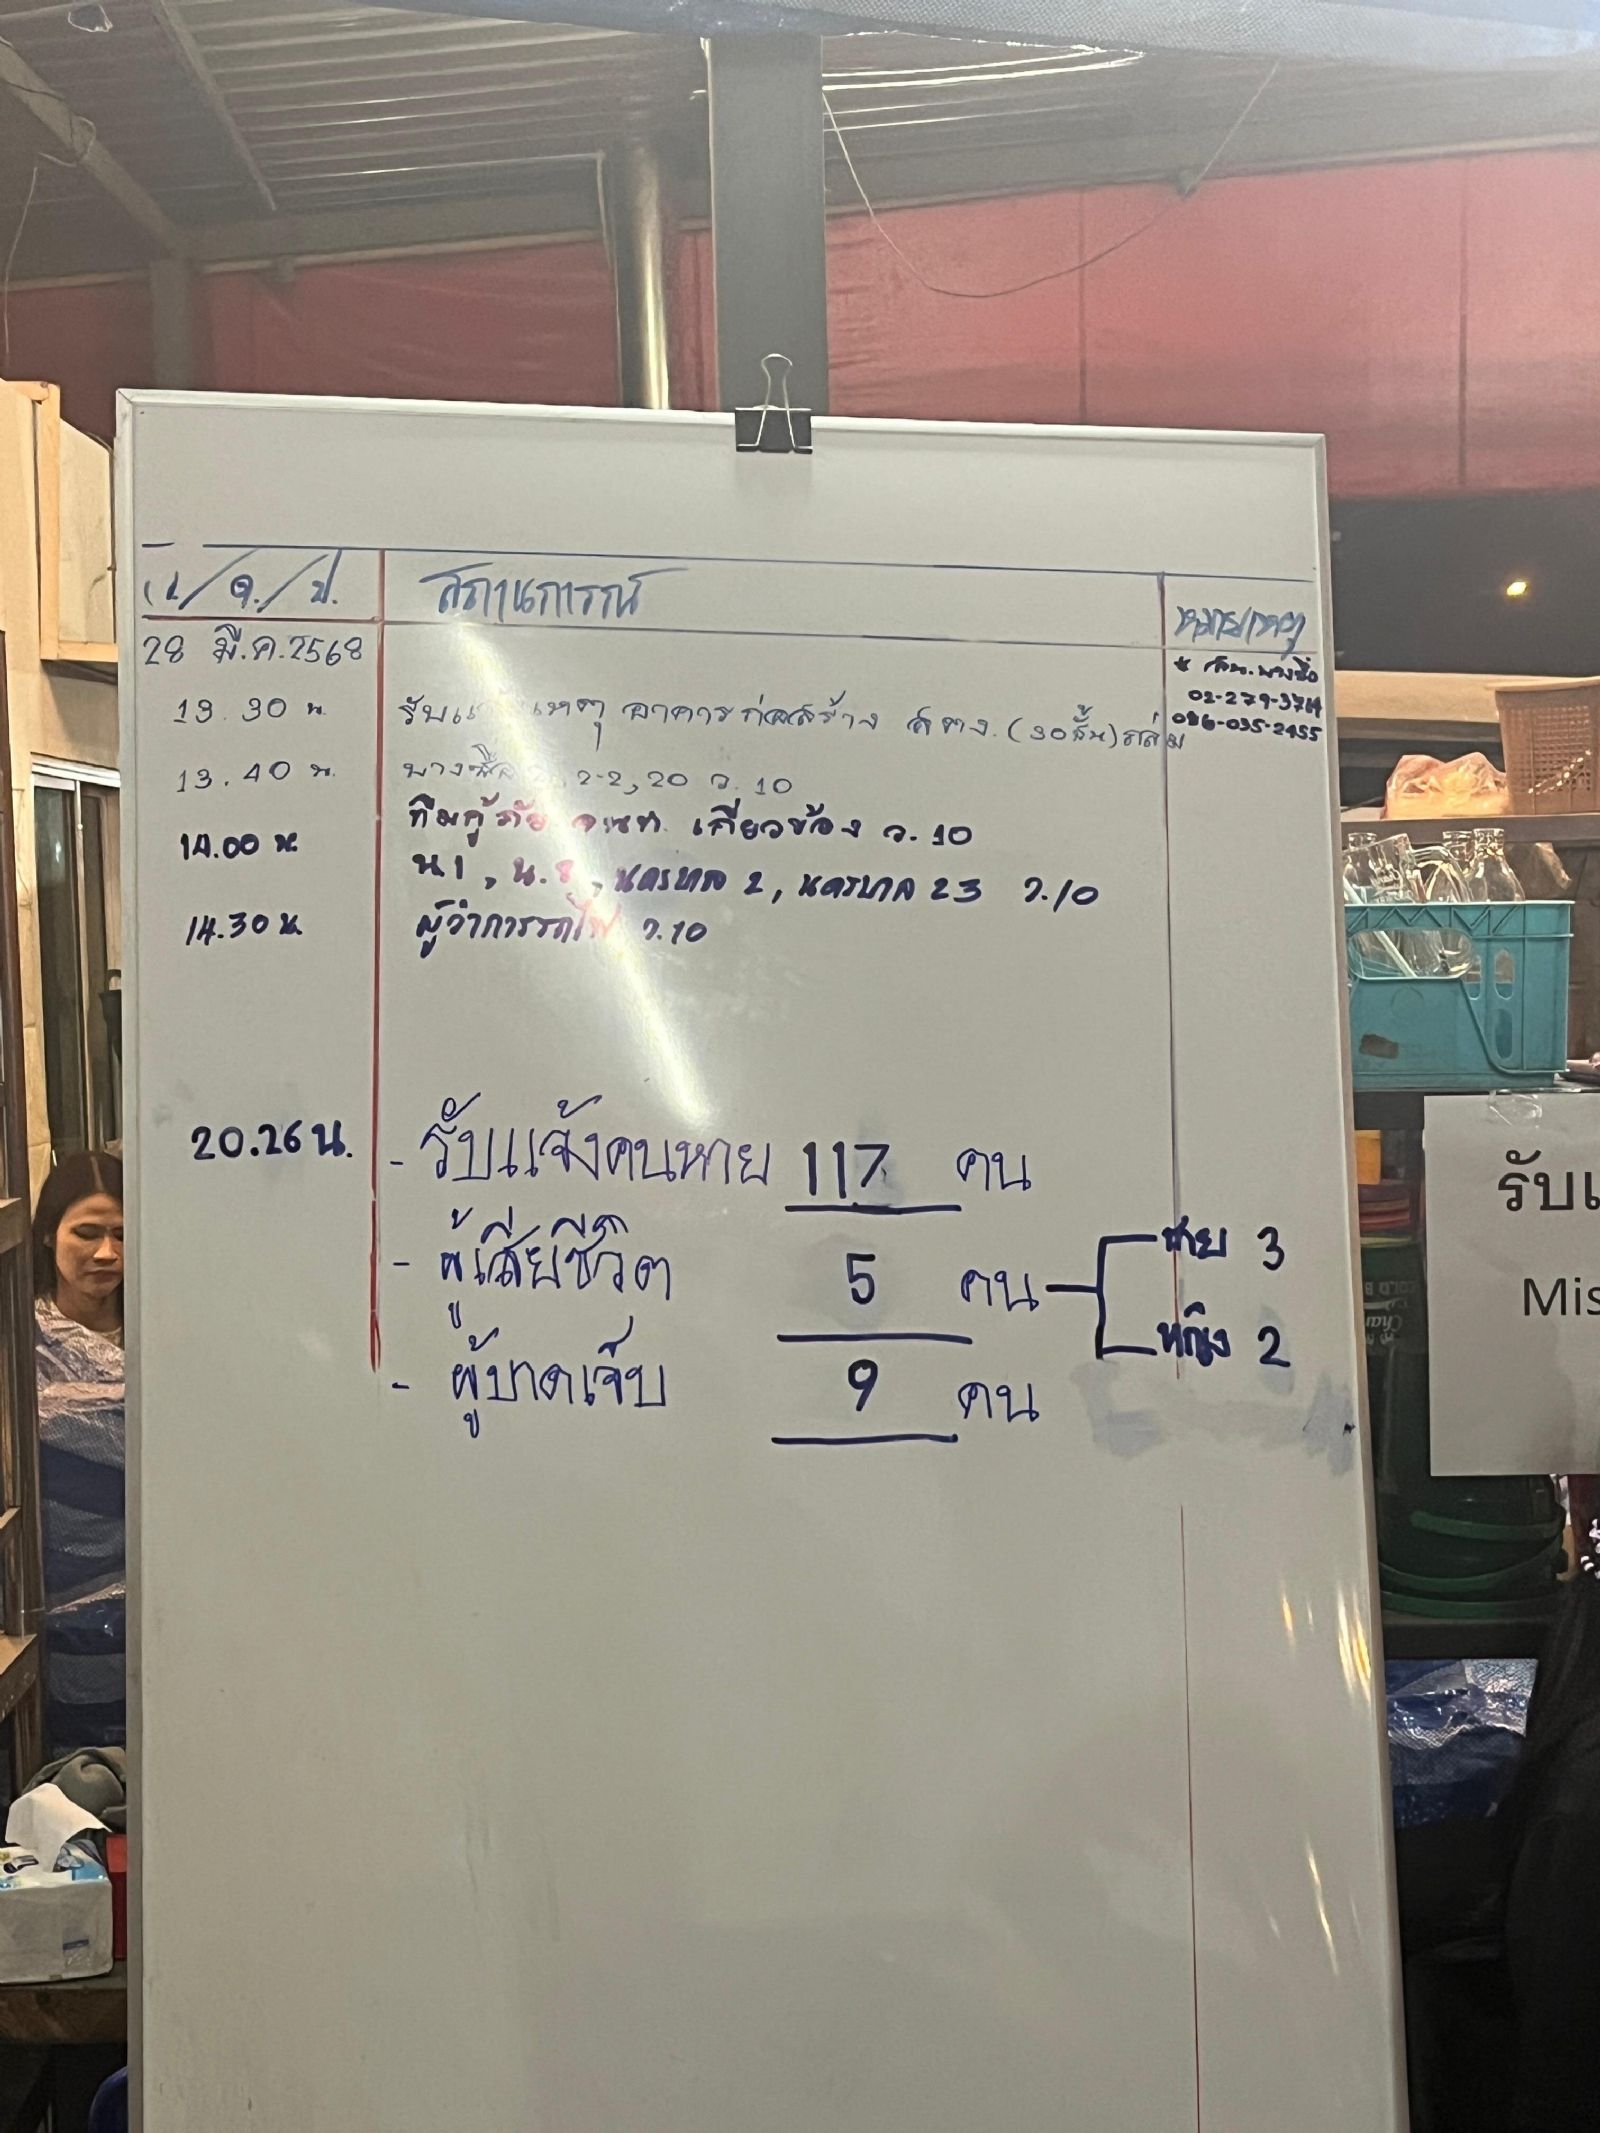 ว/ด./ป.
สถานการณ์
หมายเหตุ
28 มี.ค.2568
* สน.บางซื่อ
02-279-3714
086-035-2455
13.30 น.
รับแจ้งเหตุ อาคารก่อสร้าง สตง. (30ชั้น) ถล่ม
13.40 น.
บางซื่อ 2-2, 20 ว.10
14.00 น
ทีมกู้ภัย จนท. เกี่ยวข้อง ว.10
น.1, น.8, นครบาล 2, นครบาล 23 ว.10
14.30 น.
ผู้ว่าการรถไฟ ว.10
20.26 น.
- รับแจ้งคนหาย 117 คน
- ผู้เสียชีวิต 5 คน
ชาย 3
หญิง 2
- ผู้บาดเจ็บ 9 คน